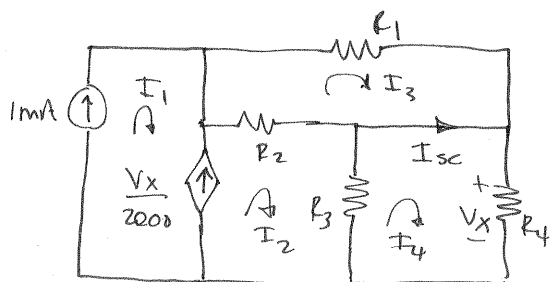 R1
1mA
I1
I3
R2
Isc
Vx
2000
I2
R3
I4
+
Vx
-
R4